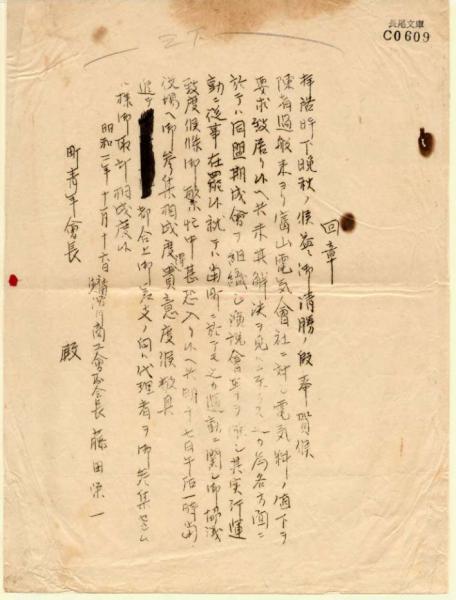 長尾文庫
C0609
回章
拝啓時下晩秋ノ候益々御清勝ノ段奉賀候
陳者過般来ヨリ富山電気會社ニ対し電気料ノ値下ヲ
要求致居り候へ共未其解決ヲ見ルニ至ラス之カ為各方面ニ
於テハ同盟期成會ヲ組織し演説會等ヲ催し其実行運
動ニ従事在罷候就テハ當町ニ於テモ之カ運動ニ関し御協議
致度候條御繁忙中甚恐入り候へ共明十七日午后一時当
役場へ御参集相成度貴意度候敬具
追テ 都合上御差支ノ向ハ代理者ヲ御参集セシム
様御取計相成度候
昭和二年十一月十六日
商工會副会長 藤田栄一
町青年會長 殿